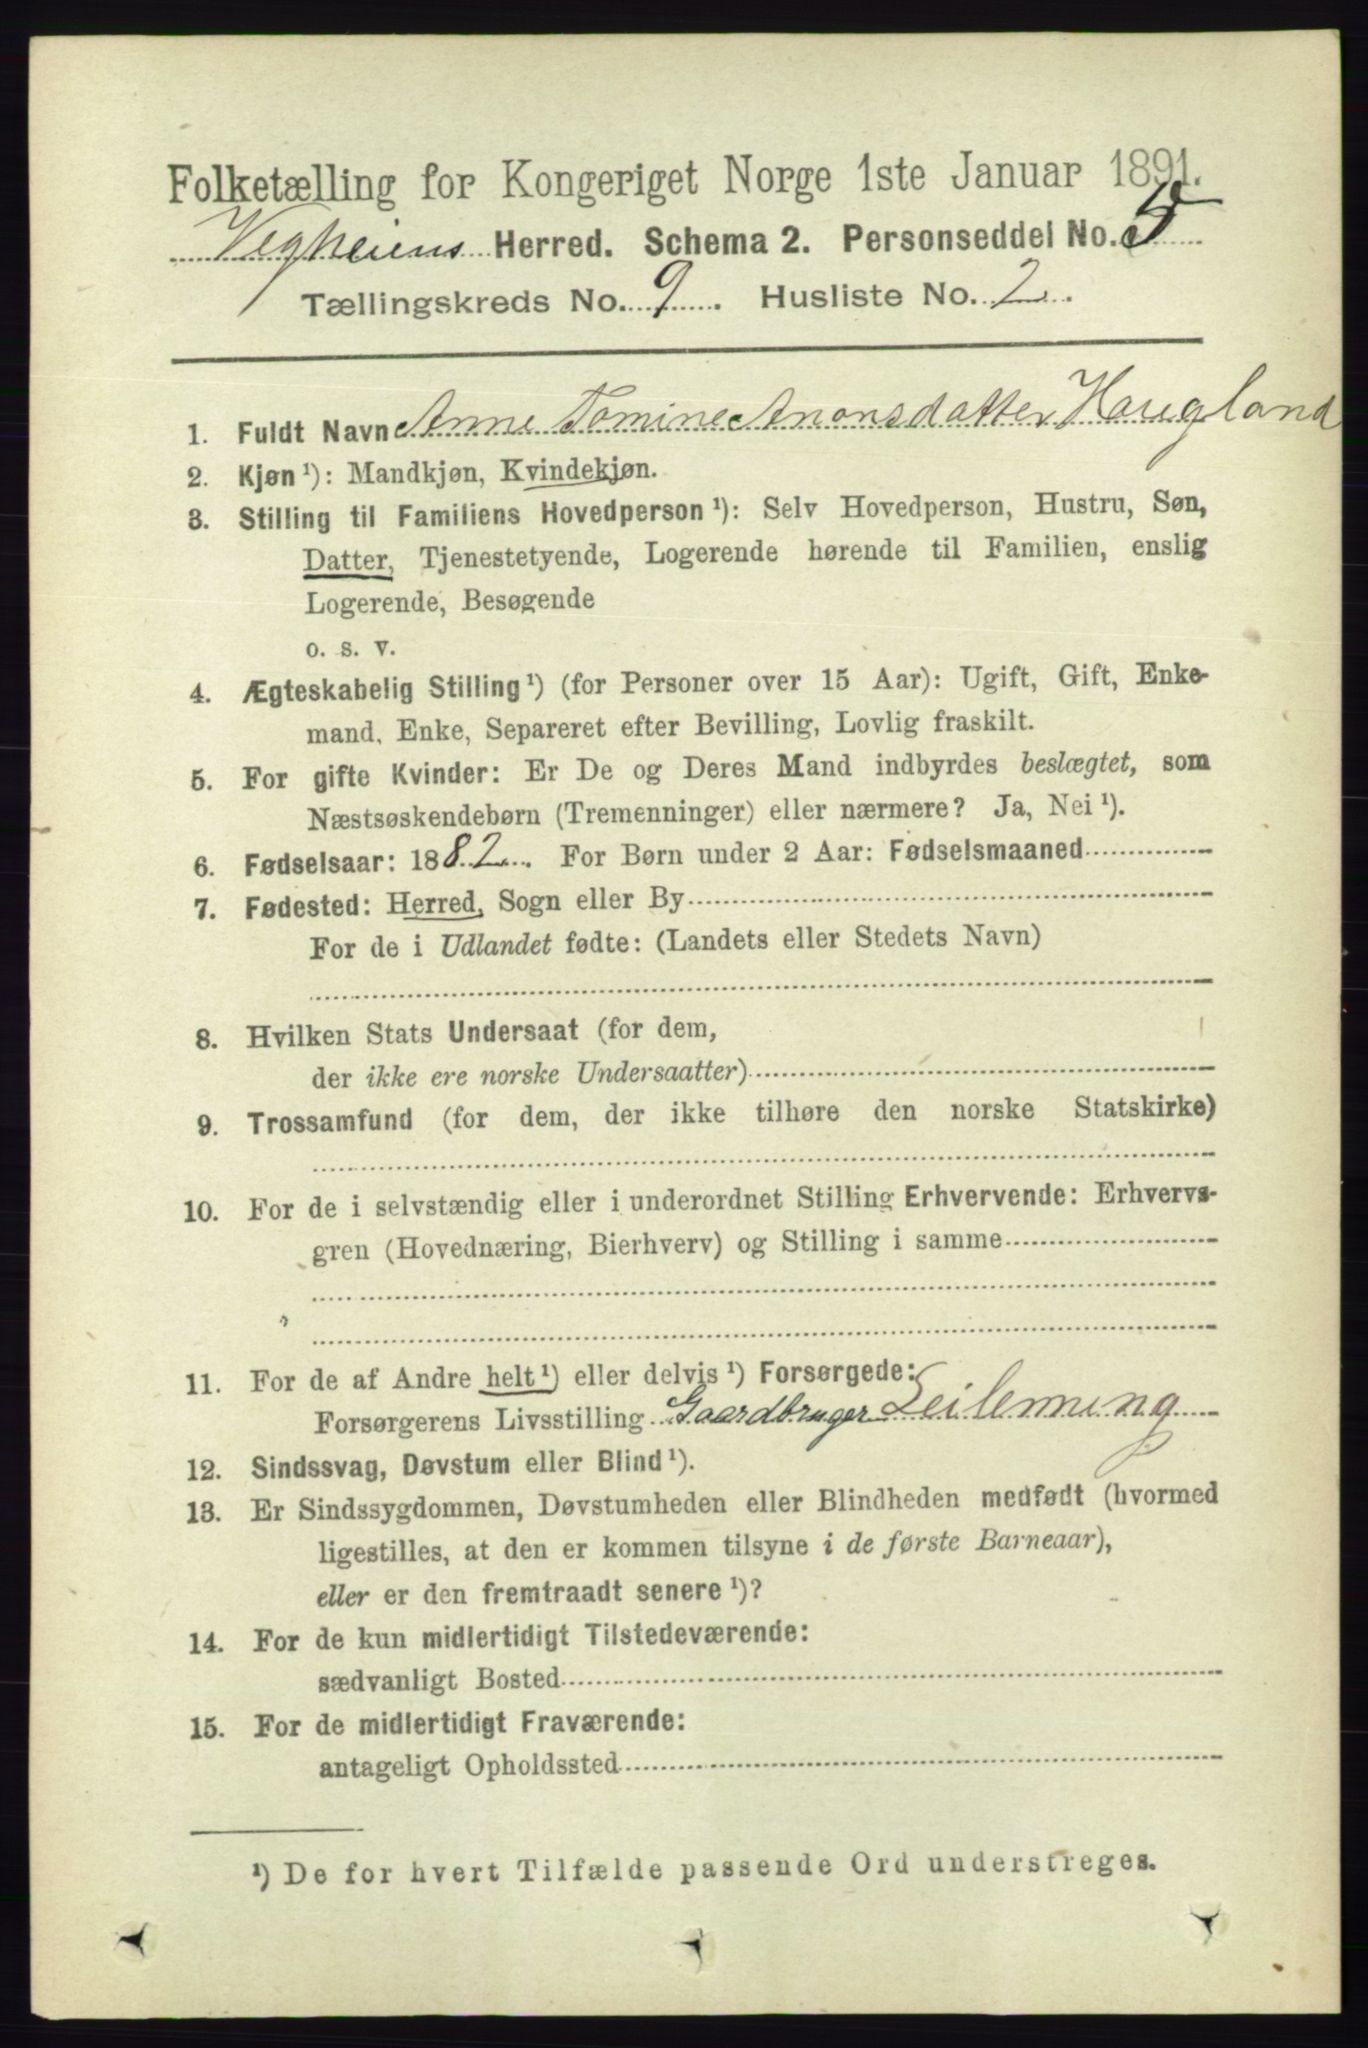 Folketælling for Kongeriget Norge 1ste Januar 1891.
Vegheiens Herred. Schema 2. Personseddel No. 5
Tællingskreds No. 9. Husliste No. 2.
1. Fuldt Navn Anne Tomine Anonsdatter Haugland
2. Kjøn¹): Mandkjøn, Kvindekjøn.
3. Stilling til Familiens Hovedperson¹): Selv Hovedperson, Hustru, Søn,
Datter, Tjenestetyende, Logerende hørende til Familien, enslig
Logerende, Besøgende
o. s. v.
4. Ægteskabelig Stilling¹) (for Personer over 15 Aar): Ugift, Gift, Enke-
mand, Enke, Separeret efter Bevilling, Lovlig fraskilt.
5. For gifte Kvinder: Er De og Deres Mand indbyrdes beslægtet, som
Næstsøskendebørn (Tremenninger) eller nærmere? Ja, Nei¹).
6. Fødselsaar: 1882. For Børn under 2 Aar: Fødselsmaaned
7. Fødested: Herred, Sogn eller By
For de i Udlandet fødte: (Landets eller Stedets Navn)
8. Hvilken Stats Undersaat (for dem,
der ikke ere norske Undersaatter)
9. Trossamfund (for dem, der ikke tilhøre den norske Statskirke)
10. For de i selvstændig eller i underordnet Stilling Erhvervende: Erhvervs-
gren (Hovednæring, Bierhverv) og Stilling i samme
11. For de af Andre helt¹) eller delvis¹) Forsørgede:
Forsørgerens Livsstilling Gaardbruger Leilenning
12. Sindssvag, Døvstum eller Blind¹).
13. Er Sindssygdommen, Døvstumheden eller Blindheden medfødt (hvormed
ligestilles, at den er kommen tilsyne i de første Barneaar),
eller er den fremtraadt senere¹)?
14. For de kun midlertidigt Tilstedeværende:
sædvanligt Bosted
15. For de midlertidigt Fraværende:
antageligt Opholdssted
¹) De for hvert Tilfælde passende Ord understreges.